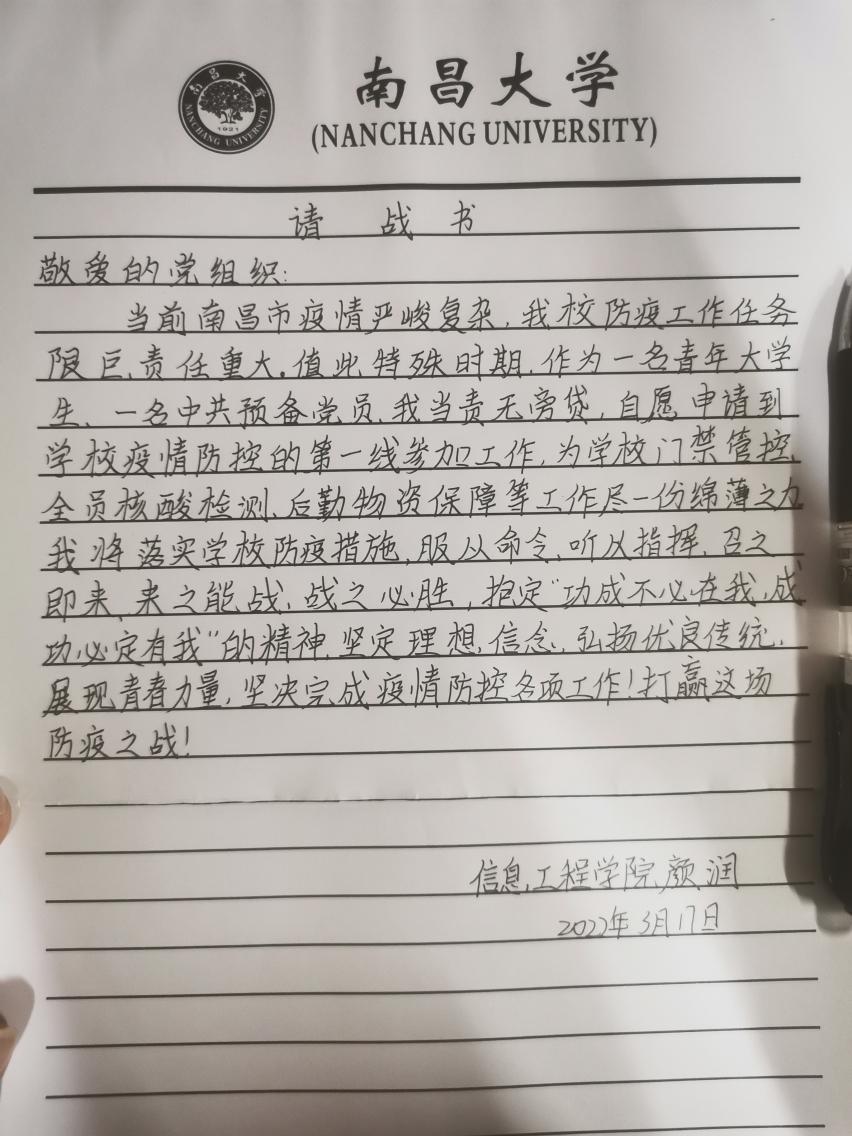 南昌大学
NANCHANG UNIVERSITY
1921
南昌大学
(NANCHANG UNIVERSITY)
请战书
敬爱的党组织:
当前南昌市疫情严峻复杂,我校防疫工作任务
限巨、责任重大。值此特殊时期,作为一名青年大学
生、一名中共预备党员,我当责无旁贷,自愿申请到
学校疫情防控的第一线参加工作,为学校门禁管控、
全员核酸检测、后勤物资保障等工作尽一份绵薄之力
我将落实学校防疫措施,服从命令,听从指挥,召之
即来、来之能战、战之必胜,抱定“功成不必在我,成
功必定有我”的精神,坚定理想、信念,弘扬优良传统,
展现青春力量,坚决完成疫情防控各项工作!打赢这场
防疫之战!
信息工程学院 颜润
2022年3月17日